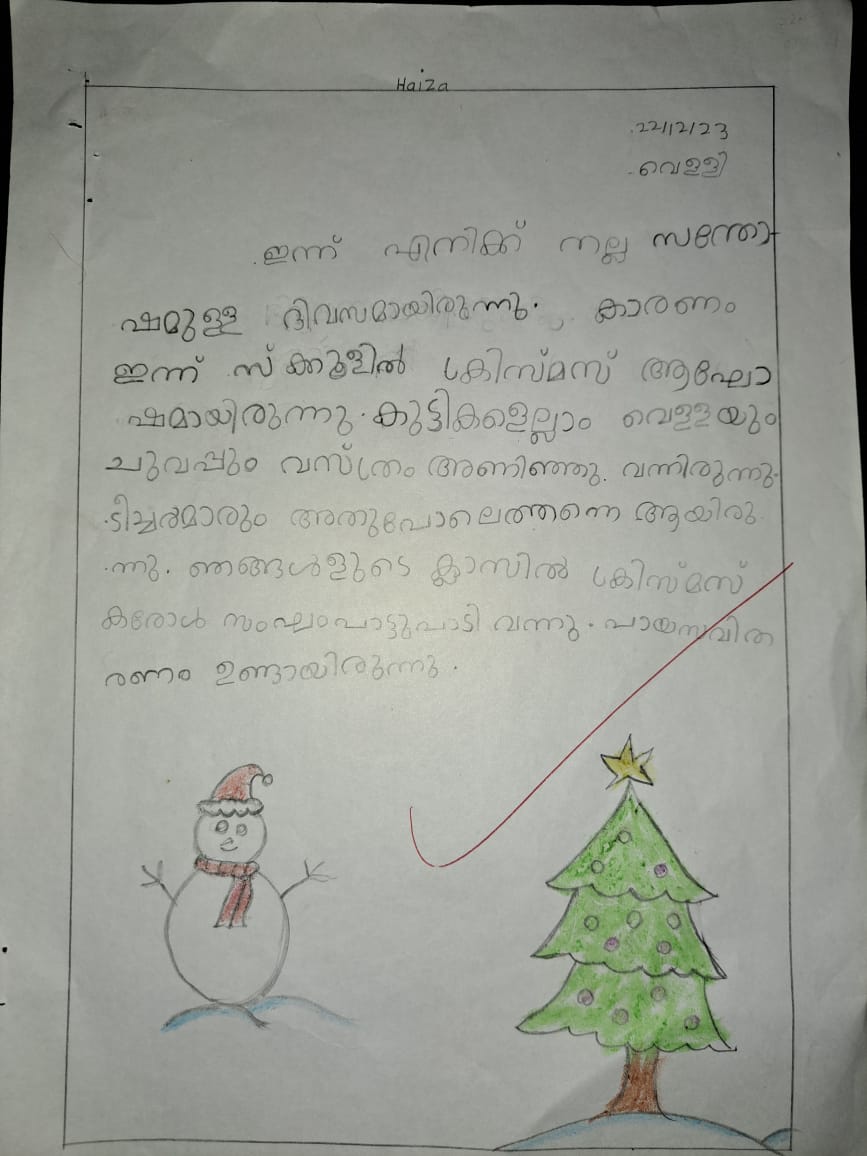 Haiza
22/12/23
വെള്ളി
ഇന്ന് എനിക്ക് നല്ല സന്തോ
ഷമുള്ള ദിവസമായിരുന്നു. കാരണം
ഇന്ന് സ്ക്കൂളിൽ ക്രിസ്മസ് ആഘോ
ഷമായിരുന്നു. കുട്ടികളെല്ലാം വെള്ളയും
ചുവപ്പും വസ്ത്രം അണിഞ്ഞു. വന്നിരുന്നു.
ടീച്ചർമാരും അതുപോലെത്തന്നെ ആയിരു
ന്നു. ഞങ്ങൾളുടെ ക്ലാസിൽ ക്രിസ്മസ്
കരോൾ സംഘംപാട്ടുപാടി വന്നു. പായസവിത
രണം ഉണ്ടായിരുന്നു.